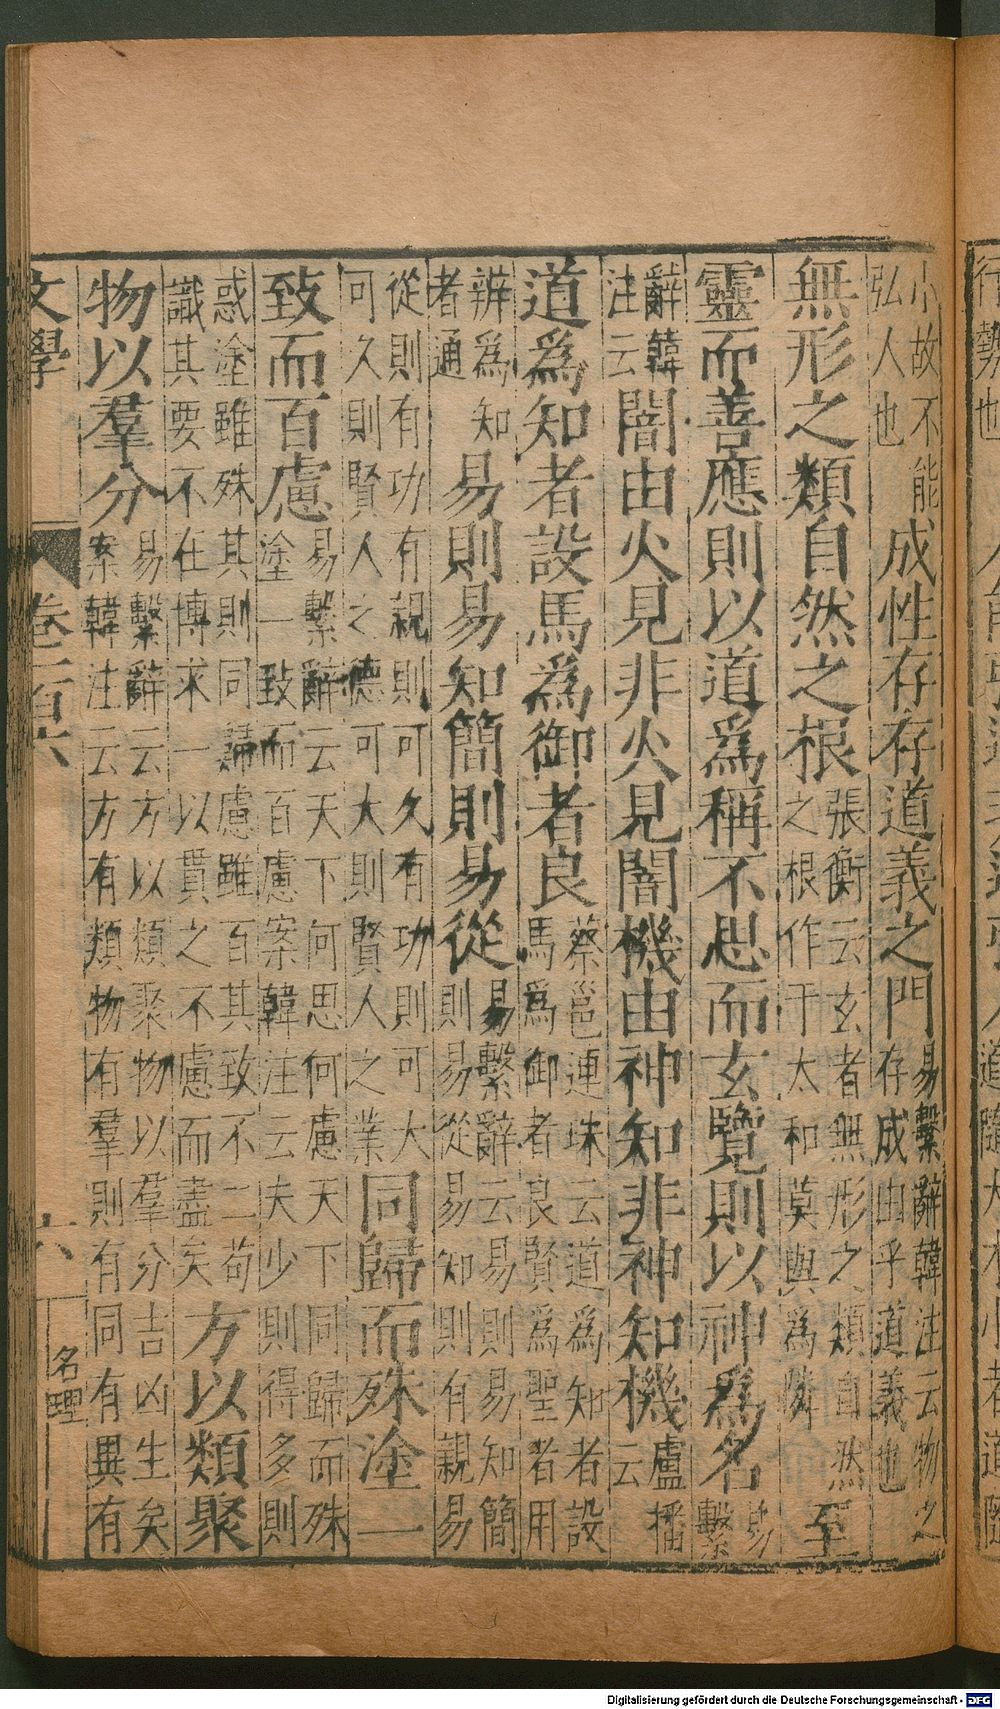 行勢也
小故不能
弘人也
成性存存道義之門
易繫辭韓注云物之
存成由乎道義也
無形之類自然之根
張衡云玄者無形之類自然
之根作于太和莫與為隣
至
靈而善應則以道為稱不思而玄覽則以神為名
易
繫
辭韓
注云
闇由火見非火見闇機由神知非神知機
盧播
云
道為知者設馬為御者良
蔡邕連珠云道為知者設
馬為御者良賢為聖者用
辨為知
者通
易則易知簡則易從
易繫辭云易則易知簡
則易從易知則有親易
從則有功有親則可久有功則可大
可久則賢人之德可大則賢人之業
同歸而殊塗一
致而百慮
易繫辭云天下何思何慮天下同歸而殊
塗一致而百慮案韓注云夫少則得多則
惑塗雖殊其則同歸慮雖百其致不二苟
識其要不在博求一以貫之不慮而盡矣
方以類聚
物以羣分
易繫辭云方以類聚物以羣分吉凶生矣
案韓注云方有類物有羣則有同有異有
文學
卷二百六
六
名理
Digitalisierung gefördert durch die Deutsche Forschungsgemeinschaft - DFG